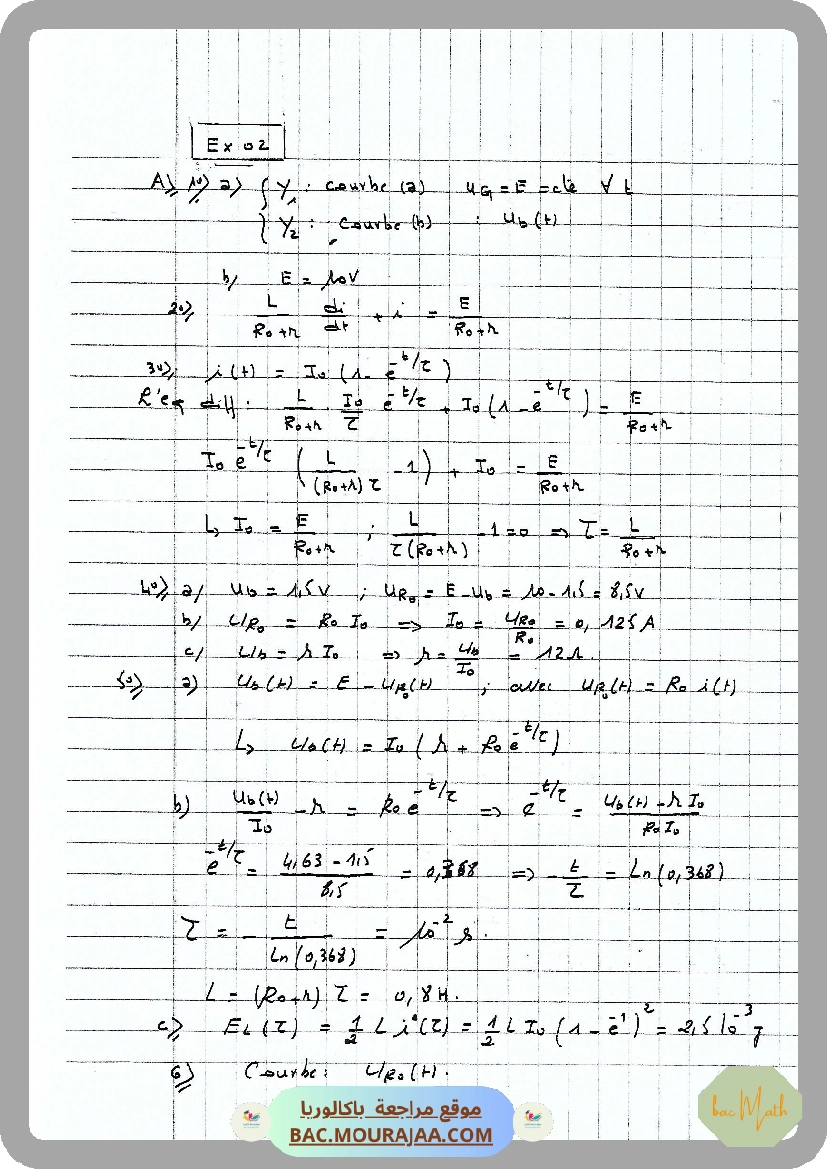 Ex 02
A) 1°) a) { Y₁ : courbe (a) uG = E = cte ∀ t
{ Y₂ : courbe (b) : ub(t)
b/ E = 10V
2°) L/(R₀+r) di/dt + i = E/(R₀+r)
3°) i(t) = I₀ (1 - e^(-t/τ))
L'eq diff : L/(R₀+r) · I₀/τ e^(-t/τ) + I₀(1 - e^(-t/τ)) = E/(R₀+r)
I₀ e^(-t/τ) (L/((R₀+r)τ) - 1) + I₀ = E/(R₀+r)
↳ I₀ = E/(R₀+r) ; L/(τ(R₀+r)) - 1 = 0 ⇒ τ = L/(R₀+r)
4°) a/ ub = 1,5V ; uR₀ = E - ub = 10 - 1,5 = 8,5V
b/ uR₀ = R₀ I₀ ⇒ I₀ = uR₀/R₀ = 0,125 A
c/ ub = r I₀ ⇒ r = ub/I₀ = 12Ω.
5°) a) ub(t) = E - uR₀(t) ; avec uR₀(t) = R₀ i(t)
↳ ub(t) = I₀ (r + R₀ e^(-t/τ))
b) ub(t)/I₀ - r = R₀ e^(-t/τ) ⇒ e^(-t/τ) = (ub(t) - r I₀)/(R₀ I₀)
e^(-t/τ) = (4,63 - 1,5)/8,5 = 0,368 ⇒ - t/τ = Ln(0,368)
τ = - t/Ln(0,368) = 10⁻² s.
L = (R₀+r) τ = 0,8H.
c) EL(τ) = 1/2 L i²(τ) = 1/2 L I₀ (1 - e⁻¹)² = 2,5 10⁻³ J
6) Courbe : uR₀(t).
موقع مراجعة باكالوريا
BAC.MOURAJAA.COM
bac Math